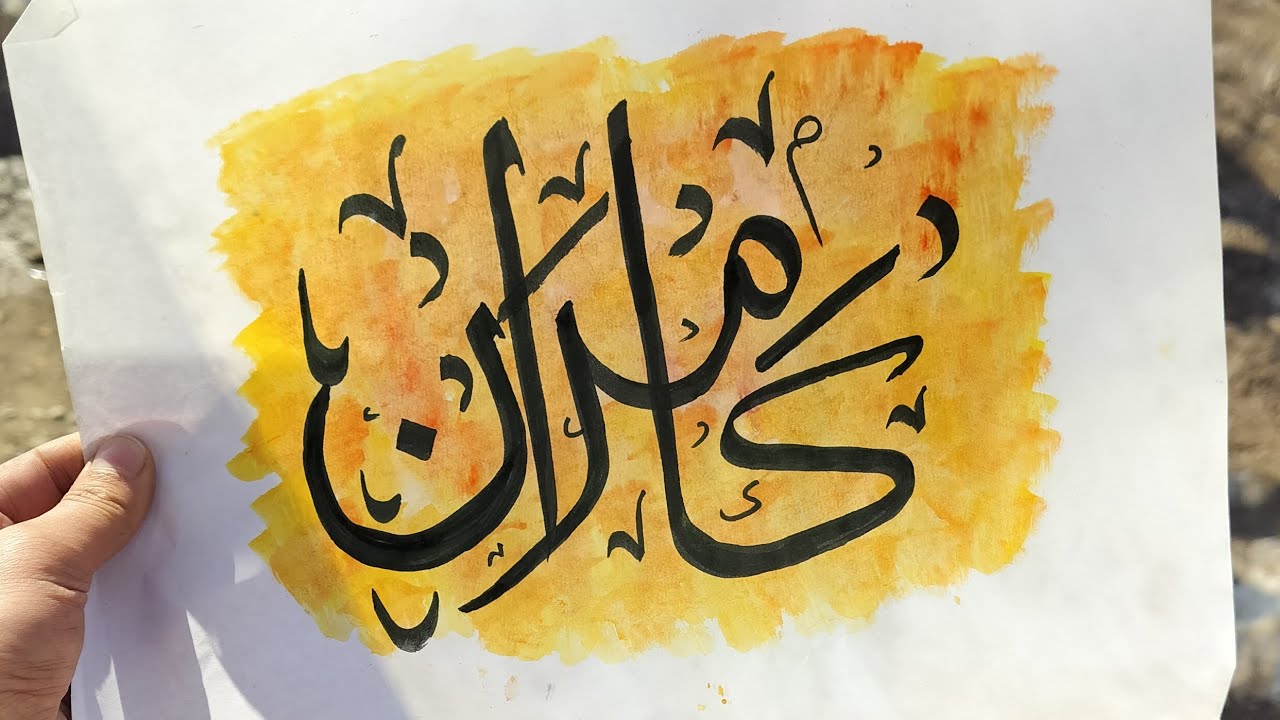 کامران